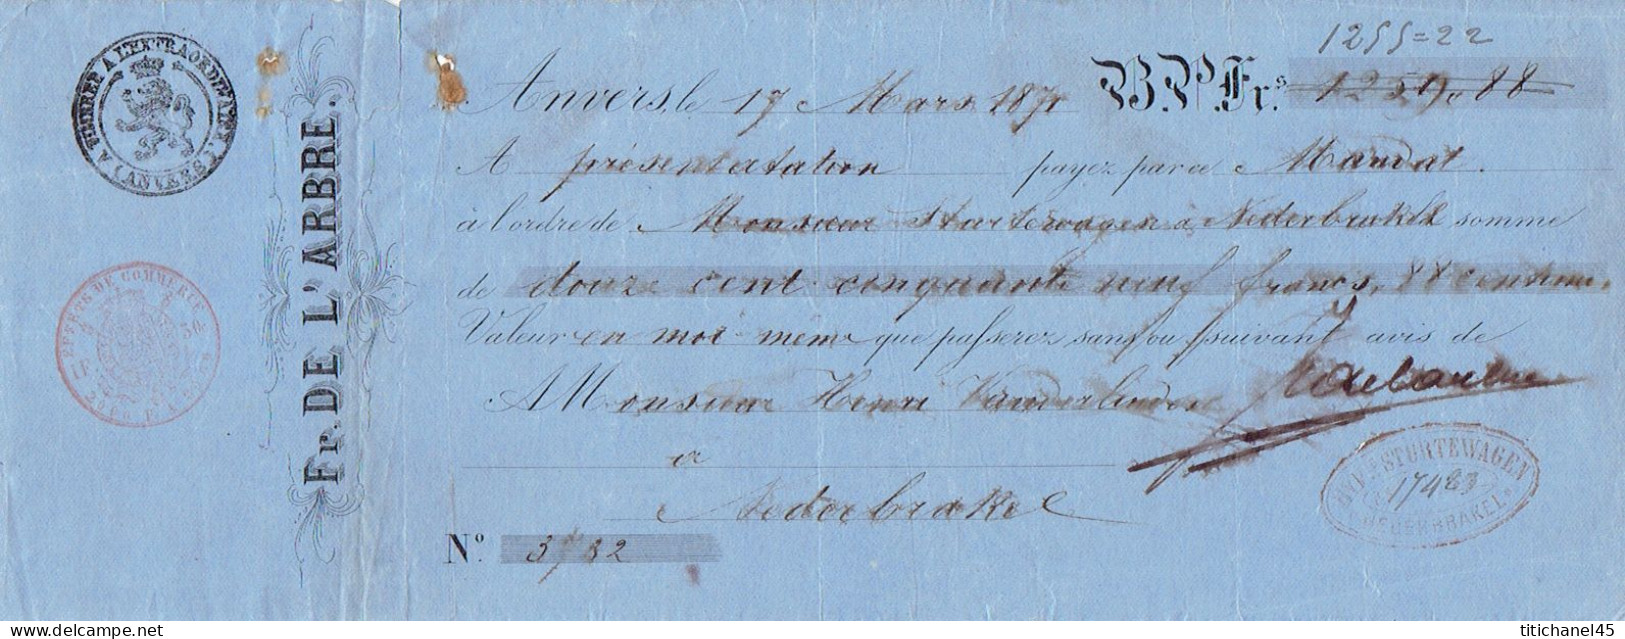 1255=22
A TIMBRER A L'EXTRAORDINAIRE
(ANVERS)
EFFETS DE COMMERCE
Fr. DE L'ARBRE.
Anvers, le 17 Mars 1871 B.P.Fr.s 1259,88
A présentatation payez par ce Mandat.
à l'ordre de Monsieur Stortewagen à Nederbrakel somme
de douze cent cinquante neuf francs, 88 centimes.
Valeur en moi-même que passerez sans ou suivant avis de
A Monsieur Henri Vanderlinden
a
Nederbrakel
STORTEWAGEN
17483
NEDERBRAKEL
N.º 3732
titichanel45